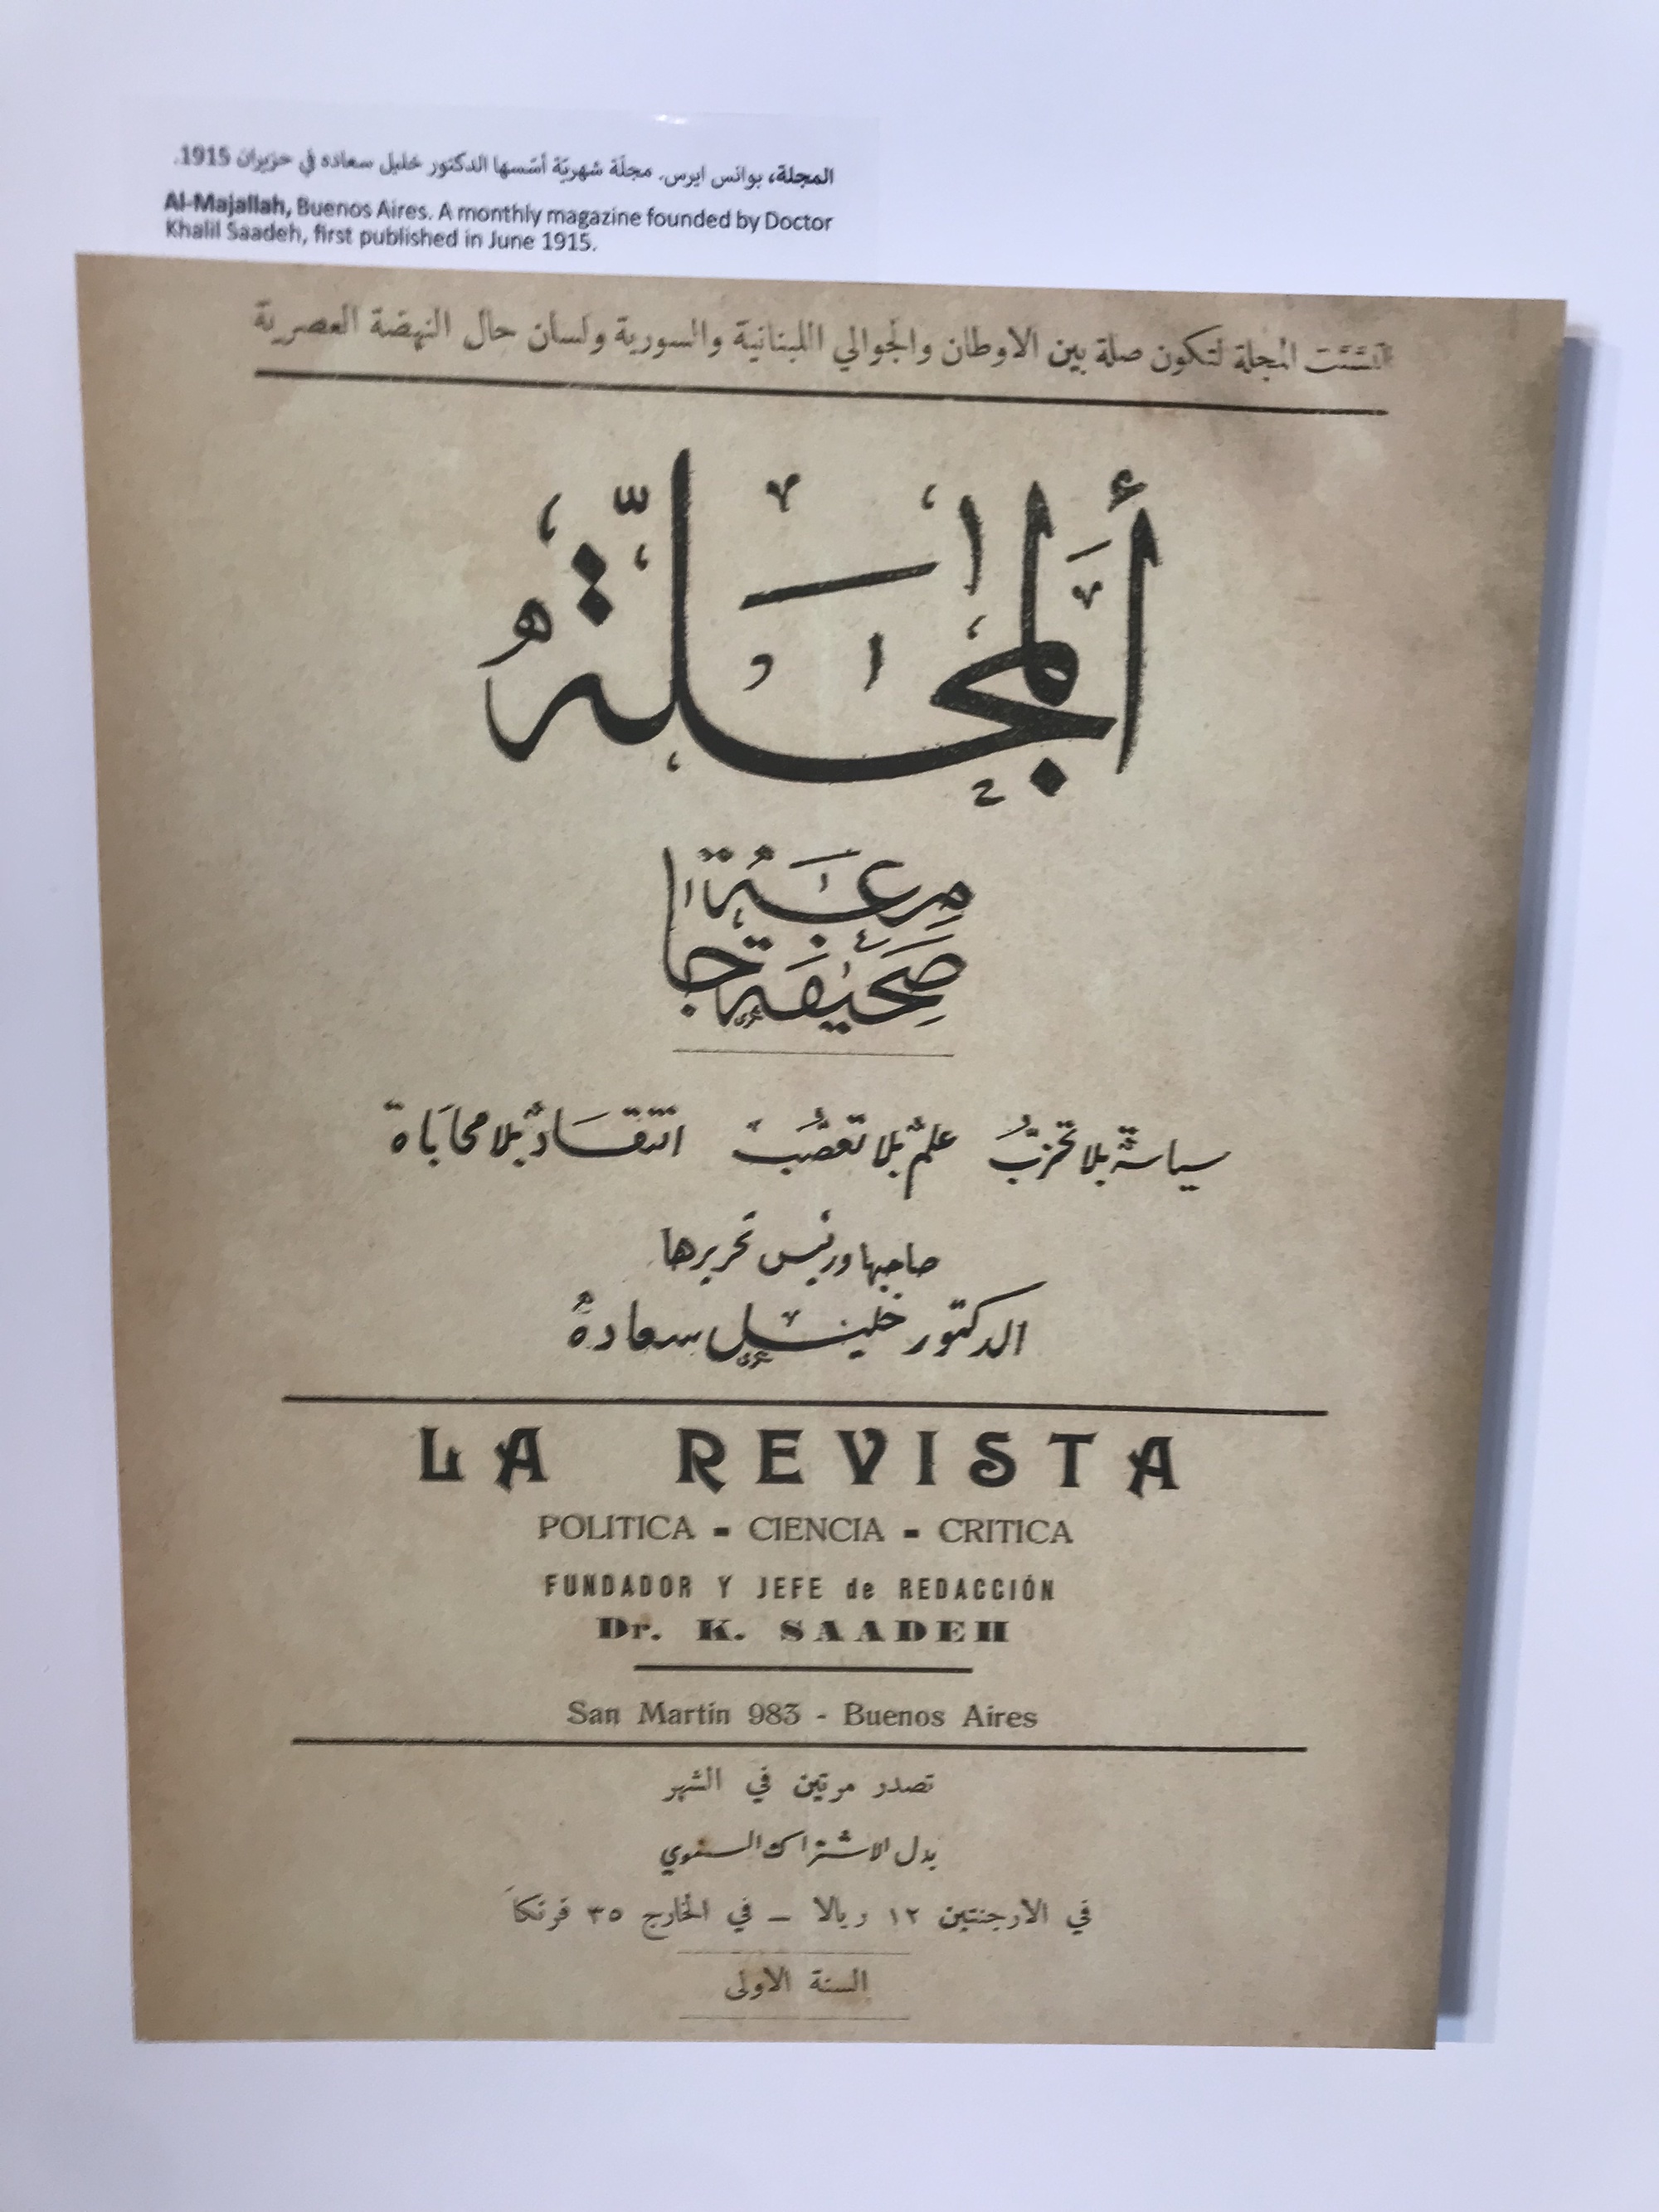 المجلة، بوانس ايرس. مجلّة شهريّة أسّسها الدكتور خليل سعاده في حزيران 1915.
Al-Majallah, Buenos Aires. A monthly magazine founded by Doctor
Khalil Saadeh, first published in June 1915.
انشئت المجلة لتكون صلة بين الاوطان والجوالي اللبنانية والسورية ولسان حال النهضة العصرية
أَلمجَلّةُ
صَحِيفَة جامِعَة
سياسةٌ بلا تحزّبٍ علمٌ بلا تعصّبٍ انتقادٌ بلا محاباة
صاحبها ورئيس تحريرها
الدكتور خليل سعادة
LA REVISTA
POLITICA - CIENCIA - CRITICA
FUNDADOR Y JEFE de REDACCIÓN
Dr. K. SAADEH
San Martín 983 - Buenos Aires
تصدر مرتين في الشهر
بدل الاشتراك السنوي
في الارجنتين ١٢ ريالا – في الخارج ٣٥ فرنكاً
السنة الاولى